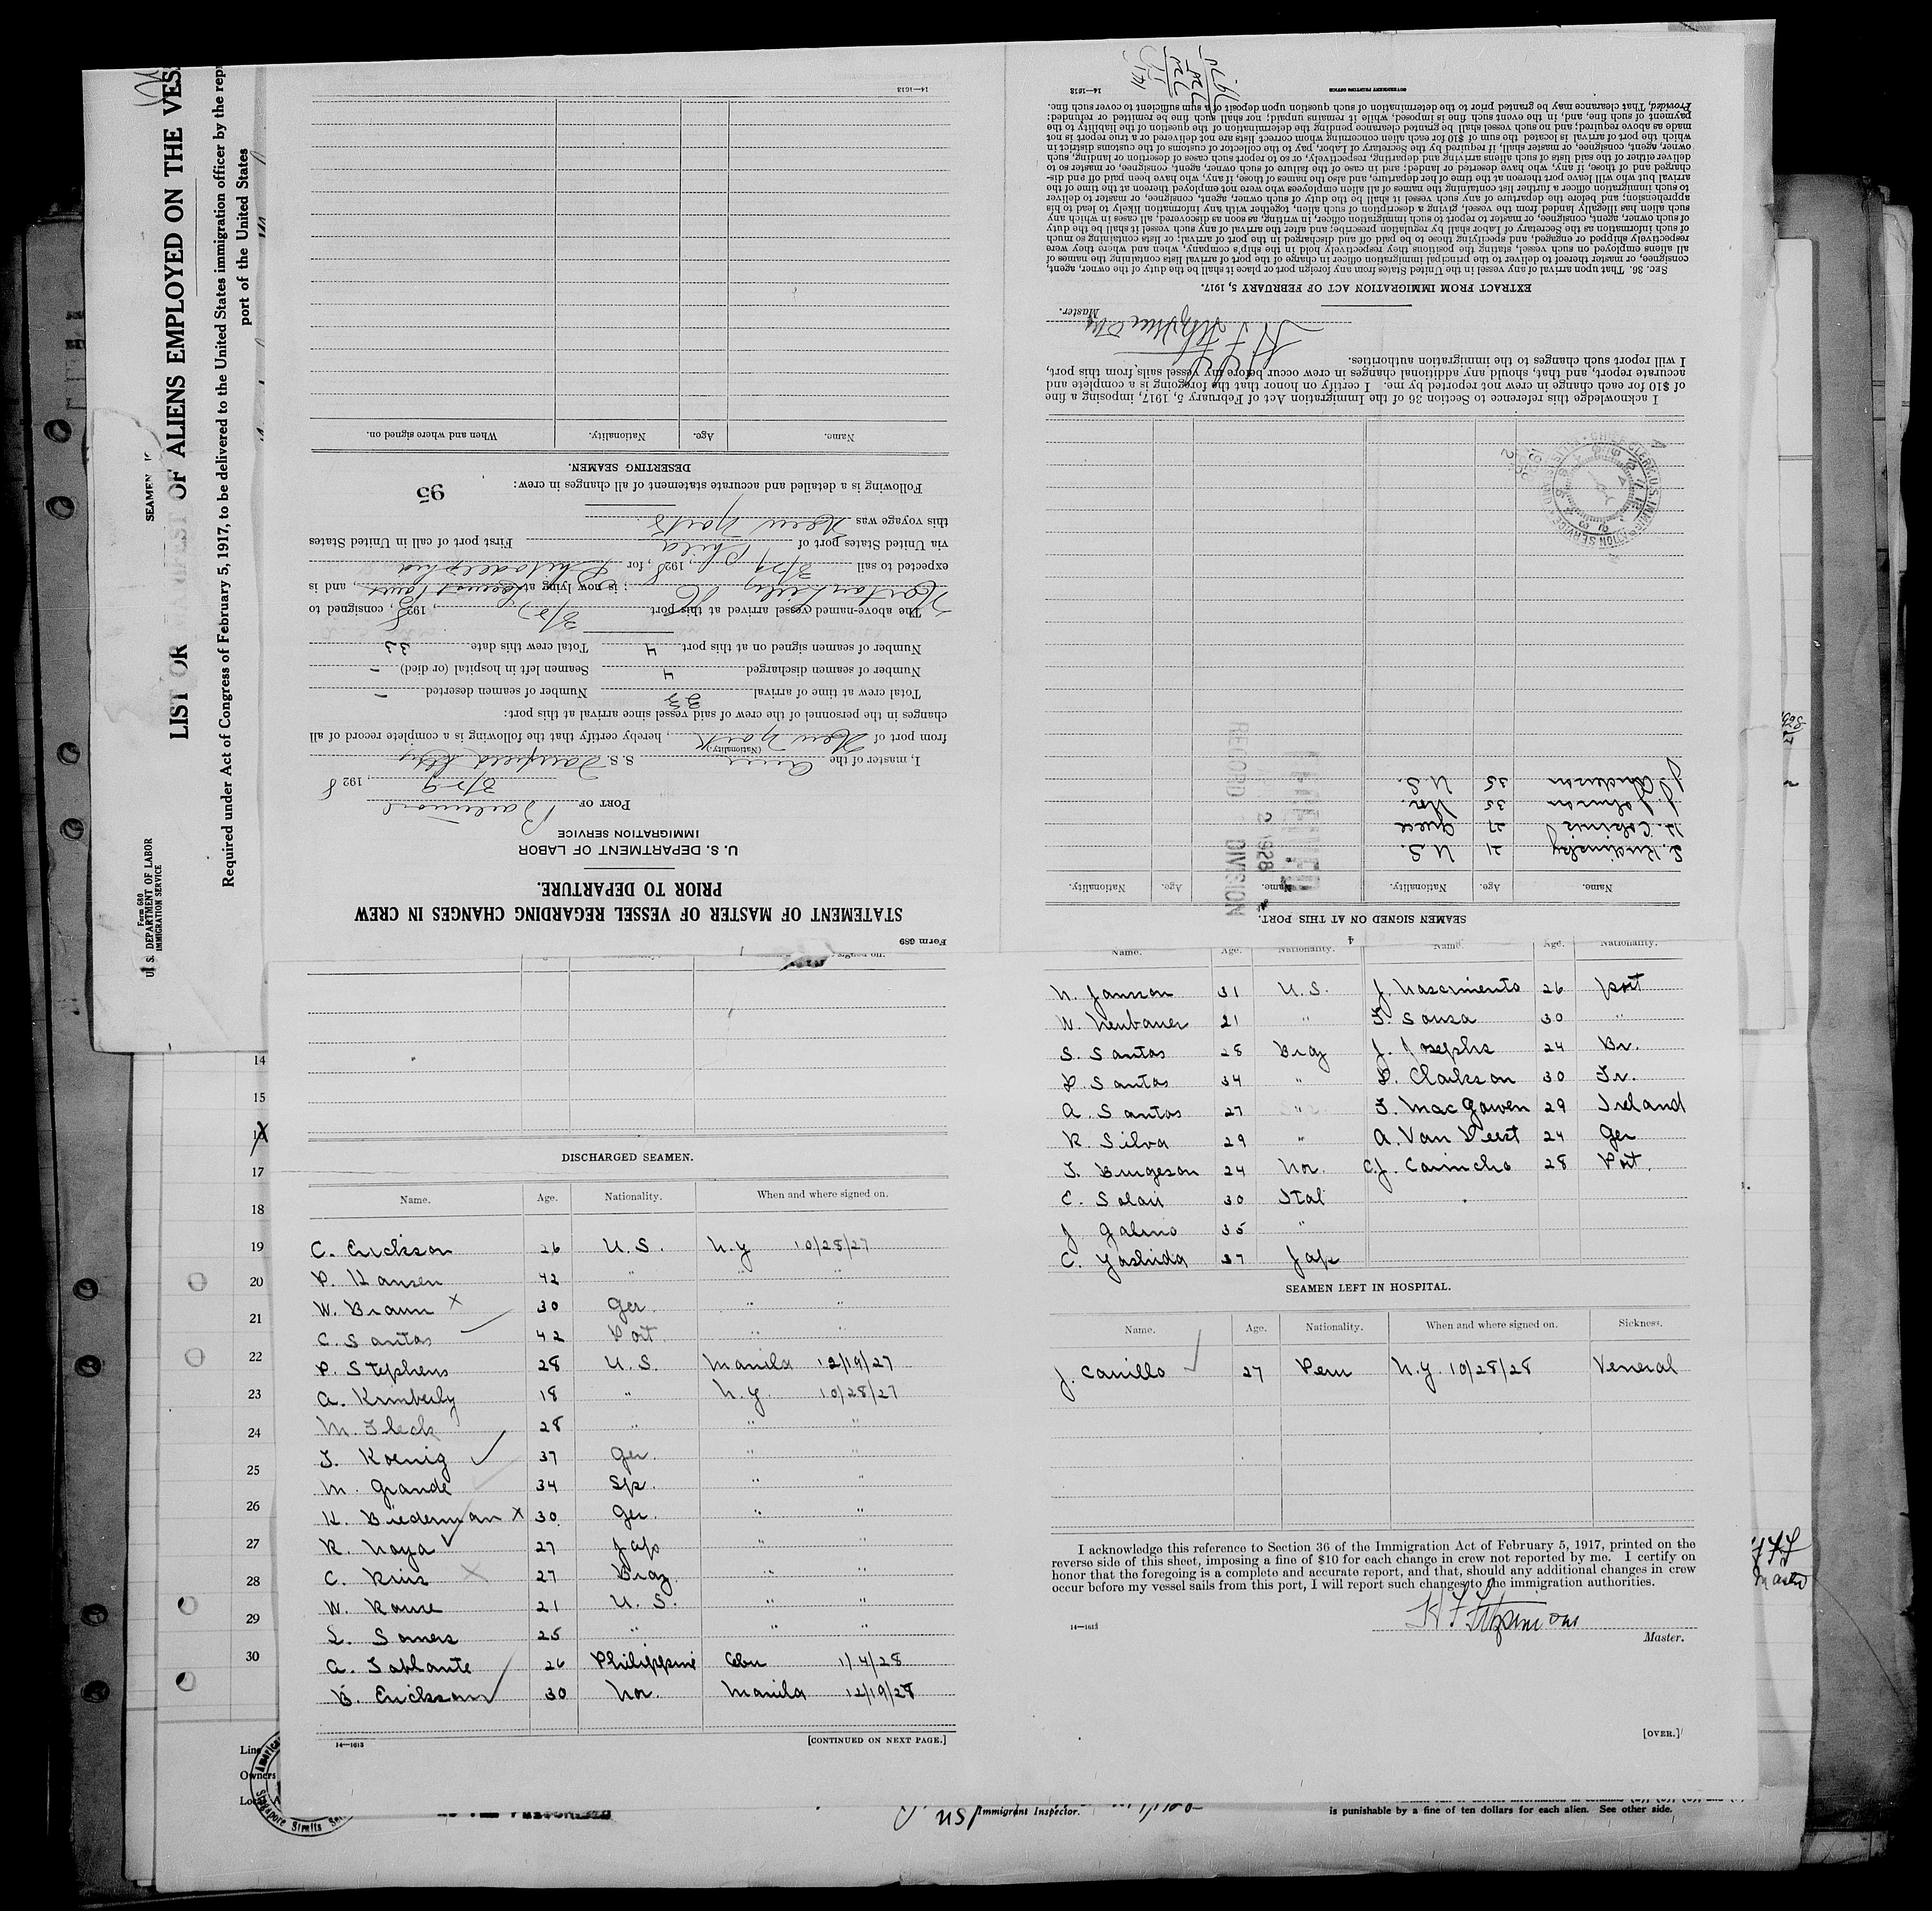 SEAMEN
LIST OR MANIFEST OF ALIENS EMPLOYED ON THE VES
Required under Act of Congress of February 5, 1917, to be delivered to the United States immigration officer by the rep
port of the United States
Form 680
U. S. DEPARTMENT OF LABOR
IMMIGRATION SERVICE
Form 689
STATEMENT OF MASTER OF VESSEL REGARDING CHANGES IN CREW
PRIOR TO DEPARTURE.
U. S. DEPARTMENT OF LABOR
IMMIGRATION SERVICE
PORT OF Baltimore
3/29, 1928
I, master of the Amer S. S.
(Nationality.)
from port of New York, hereby certify that the following is a complete record of all
changes in the personnel of the crew of said vessel since arrival at this port:
Total crew at time of arrival 33 Number of seamen deserted –
Number of seamen discharged 4 Seamen left in hospital (or died) –
Number of seamen signed on at this port 4 Total crew this date 33
The above-named vessel arrived at this port 3/27, 1928, consigned to
; is now lying at, and is
expected to sail 3/29, 1928, for Philadelphia
via United States port of Phila First port of call in United States
this voyage was New York
Following is a detailed and accurate statement of all changes in crew:
95
DESERTING SEAMEN.
Name. Age. Nationality. When and where signed on.
14—1613
4
SEAMEN SIGNED ON AT THIS PORT.
Name. Age. Nationality. Name. Age. Nationality.
S. Kudinsky 21 U.S.
27 Greece
J. Johnson 35 Nor.
J. Anderson 35 U.S.
RECORD DIVISION
2 1928
I acknowledge this reference to Section 36 of the Immigration Act of February 5, 1917, imposing a fine
of $10 for each change in crew not reported by me. I certify on honor that the foregoing is a complete and
accurate report, and that, should any additional changes in crew occur before my vessel sails from this port,
I will report such changes to the immigration authorities.
H F Fitzsimmons
Master.
EXTRACT FROM IMMIGRATION ACT OF FEBRUARY 5, 1917.
SEC. 36. That upon arrival of any vessel in the United States from any foreign port or place it shall be the duty of the owner, agent,
consignee, or master thereof to deliver to the principal immigration officer in charge of the port of arrival lists containing the names of
all aliens employed on such vessel, stating the positions they respectively hold in the ship's company, when and where they were
respectively shipped or engaged, and specifying those to be paid off and discharged in the port of arrival; or lists containing so much
of such information as the Secretary of Labor shall by regulation prescribe; and after the arrival of any such vessel it shall be the duty
of such owner, agent, consignee, or master to report to such immigration officer, in writing, as soon as discovered, all cases in which any
such alien has illegally landed from the vessel, giving a description of such alien, together with any information likely to lead to his
apprehension; and before the departure of any such vessel it shall be the duty of such owner, agent, consignee, or master to deliver
to such immigration officer a further list containing the names of all alien employees who were not employed thereon at the time of the
arrival but who will leave port thereon at the time of her departure, and also the names of those, if any, who have been paid off and dis-
charged and of those, if any, who have deserted or landed; and in case of the failure of such owner, agent, consignee, or master so to
deliver either of the said lists of such aliens arriving and departing, respectively, or so to report such cases of desertion or landing, such
owner, agent, consignee, or master shall, if required by the Secretary of Labor, pay to the collector of customs of the customs district in
which the port of arrival is located the sum of $10 for each alien concerning whom correct lists are not delivered or a true report is not
made as above required; and no such vessel shall be granted clearance pending the determination of the question of the liability to the
payment of such fine, and, in the event such fine is imposed, while it remains unpaid; nor shall such fine be remitted or refunded:
Provided, That clearance may be granted prior to the determination of such question upon deposit of a sum sufficient to cover such fine.
GOVERNMENT PRINTING OFFICE
14—1613
14
15
16
17
18
19
20
21
22
23
24
25
26
27
28
29
30
DISCHARGED SEAMEN.
Name. Age. Nationality. When and where signed on.
C. Erickson 26 U.S. N.y 10/28/27
P. Hansen 42 " " "
W. Braun x 30 Ger. " "
C. Santos 42 Port. " "
P. Stephens 28 U.S. Manila 12/19/27
A. Kimberly 18 " N.y. 10/28/27
M. Fleck 28 " " "
F. Koenig 37 Ger. " "
M. Grande 34 Sp. " "
K. Biederman x 30 Ger. " "
K. Naya 27 Jap " "
C. Ruis x 27 Braz. " "
W. Rouse 21 U.S. " "
L. Somers 25 " " "
A. Tablante 26 Philippine Cebu 1/4/28
B. Erickson 30 Nor. Manila 12/19/27
14—1613 [CONTINUED ON NEXT PAGE.]
Name. Age. Nationality. Name. Age. Nationality.
N. Janson 31 U.S. J. Nascimento 26 Port
W. Neubauer 21 " F. Sousa 30 "
S. Santos 28 Braz J. Josephs 24 Br.
P. Santos 34 " D. Clarkson 30 Ir.
A. Santos 27 " F. MacGowen 29 Ireland
R. Silva 29 " A. Van Deest 24 Ger
T. Burgeson 24 Nor. C.J. Camcho 28 Port.
C. Solari 30 Ital
J Galino 35 "
C. Yoshida 37 Jap
SEAMEN LEFT IN HOSPITAL.
Name. Age. Nationality. When and where signed on. Sickness.
J. Carrillo 27 Peru N.y. 10/28/28 Veneral
I acknowledge this reference to Section 36 of the Immigration Act of February 5, 1917, printed on the
reverse side of this sheet, imposing a fine of $10 for each change in crew not reported by me. I certify on
honor that the foregoing is a complete and accurate report, and that, should any additional changes in crew
occur before my vessel sails from this port, I will report such changes to the immigration authorities.
H F Fitzsimmons
14—1613 Master.
[OVER.]
Line
Owners
Immigrant Inspector.
is punishable by a fine of ten dollars for each alien. See other side.